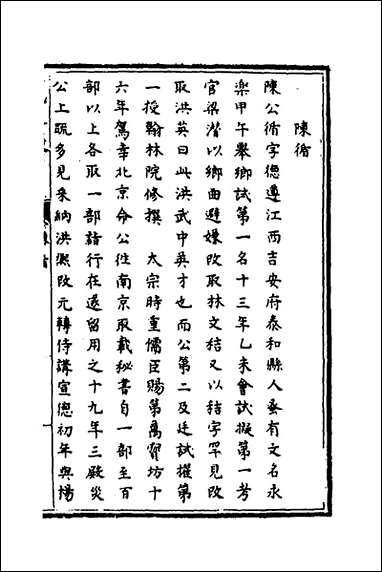 陳循
陳公循字德遵江西吉安府泰和縣人蚤有文名永
樂甲午舉鄉試第一名十三年乙未會試擬第一考
官梁潛以鄉曲避嫌改取林文秸又以秸字罕見改
取洪英曰此洪武中英才也而公第二及廷試擢第
一授翰林院修撰 太宗時重儒臣賜第萬寶坊十
六年駕幸北京命公往南京取載秘書自一部至百
部以上各取一部詣行在遂留用之十九年三殿災
公上疏多見采納洪熙改元轉侍講宣德初年與楊